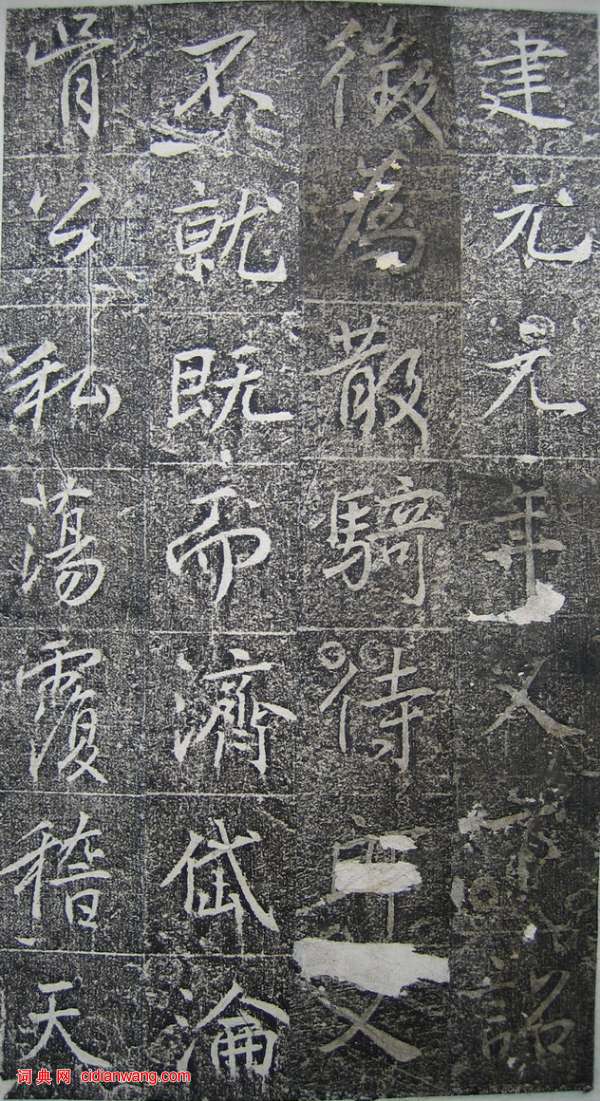 建元元年又詔
徵為散騎待又
不就既而濟岱淪
胥公私蕩覆稽天
词典网 cidianwang.com